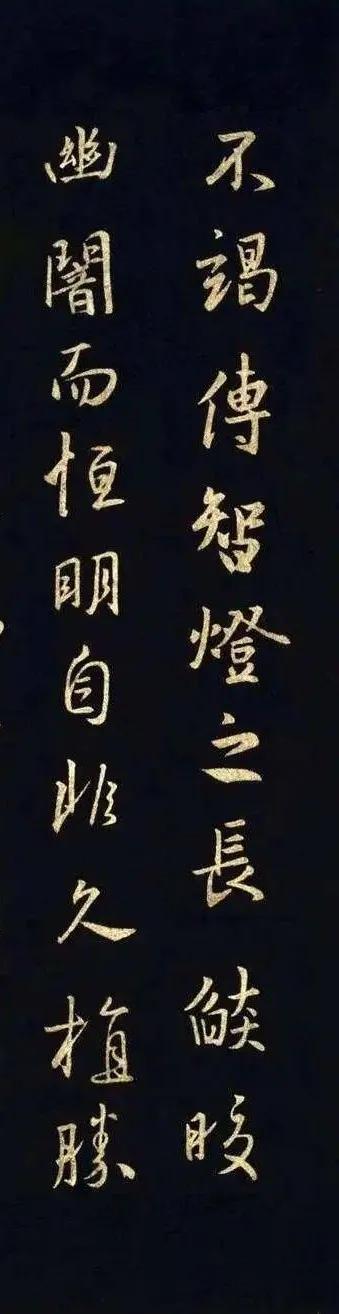 不竭傳智燈之長燄皎
幽闇而恒明自非久植勝